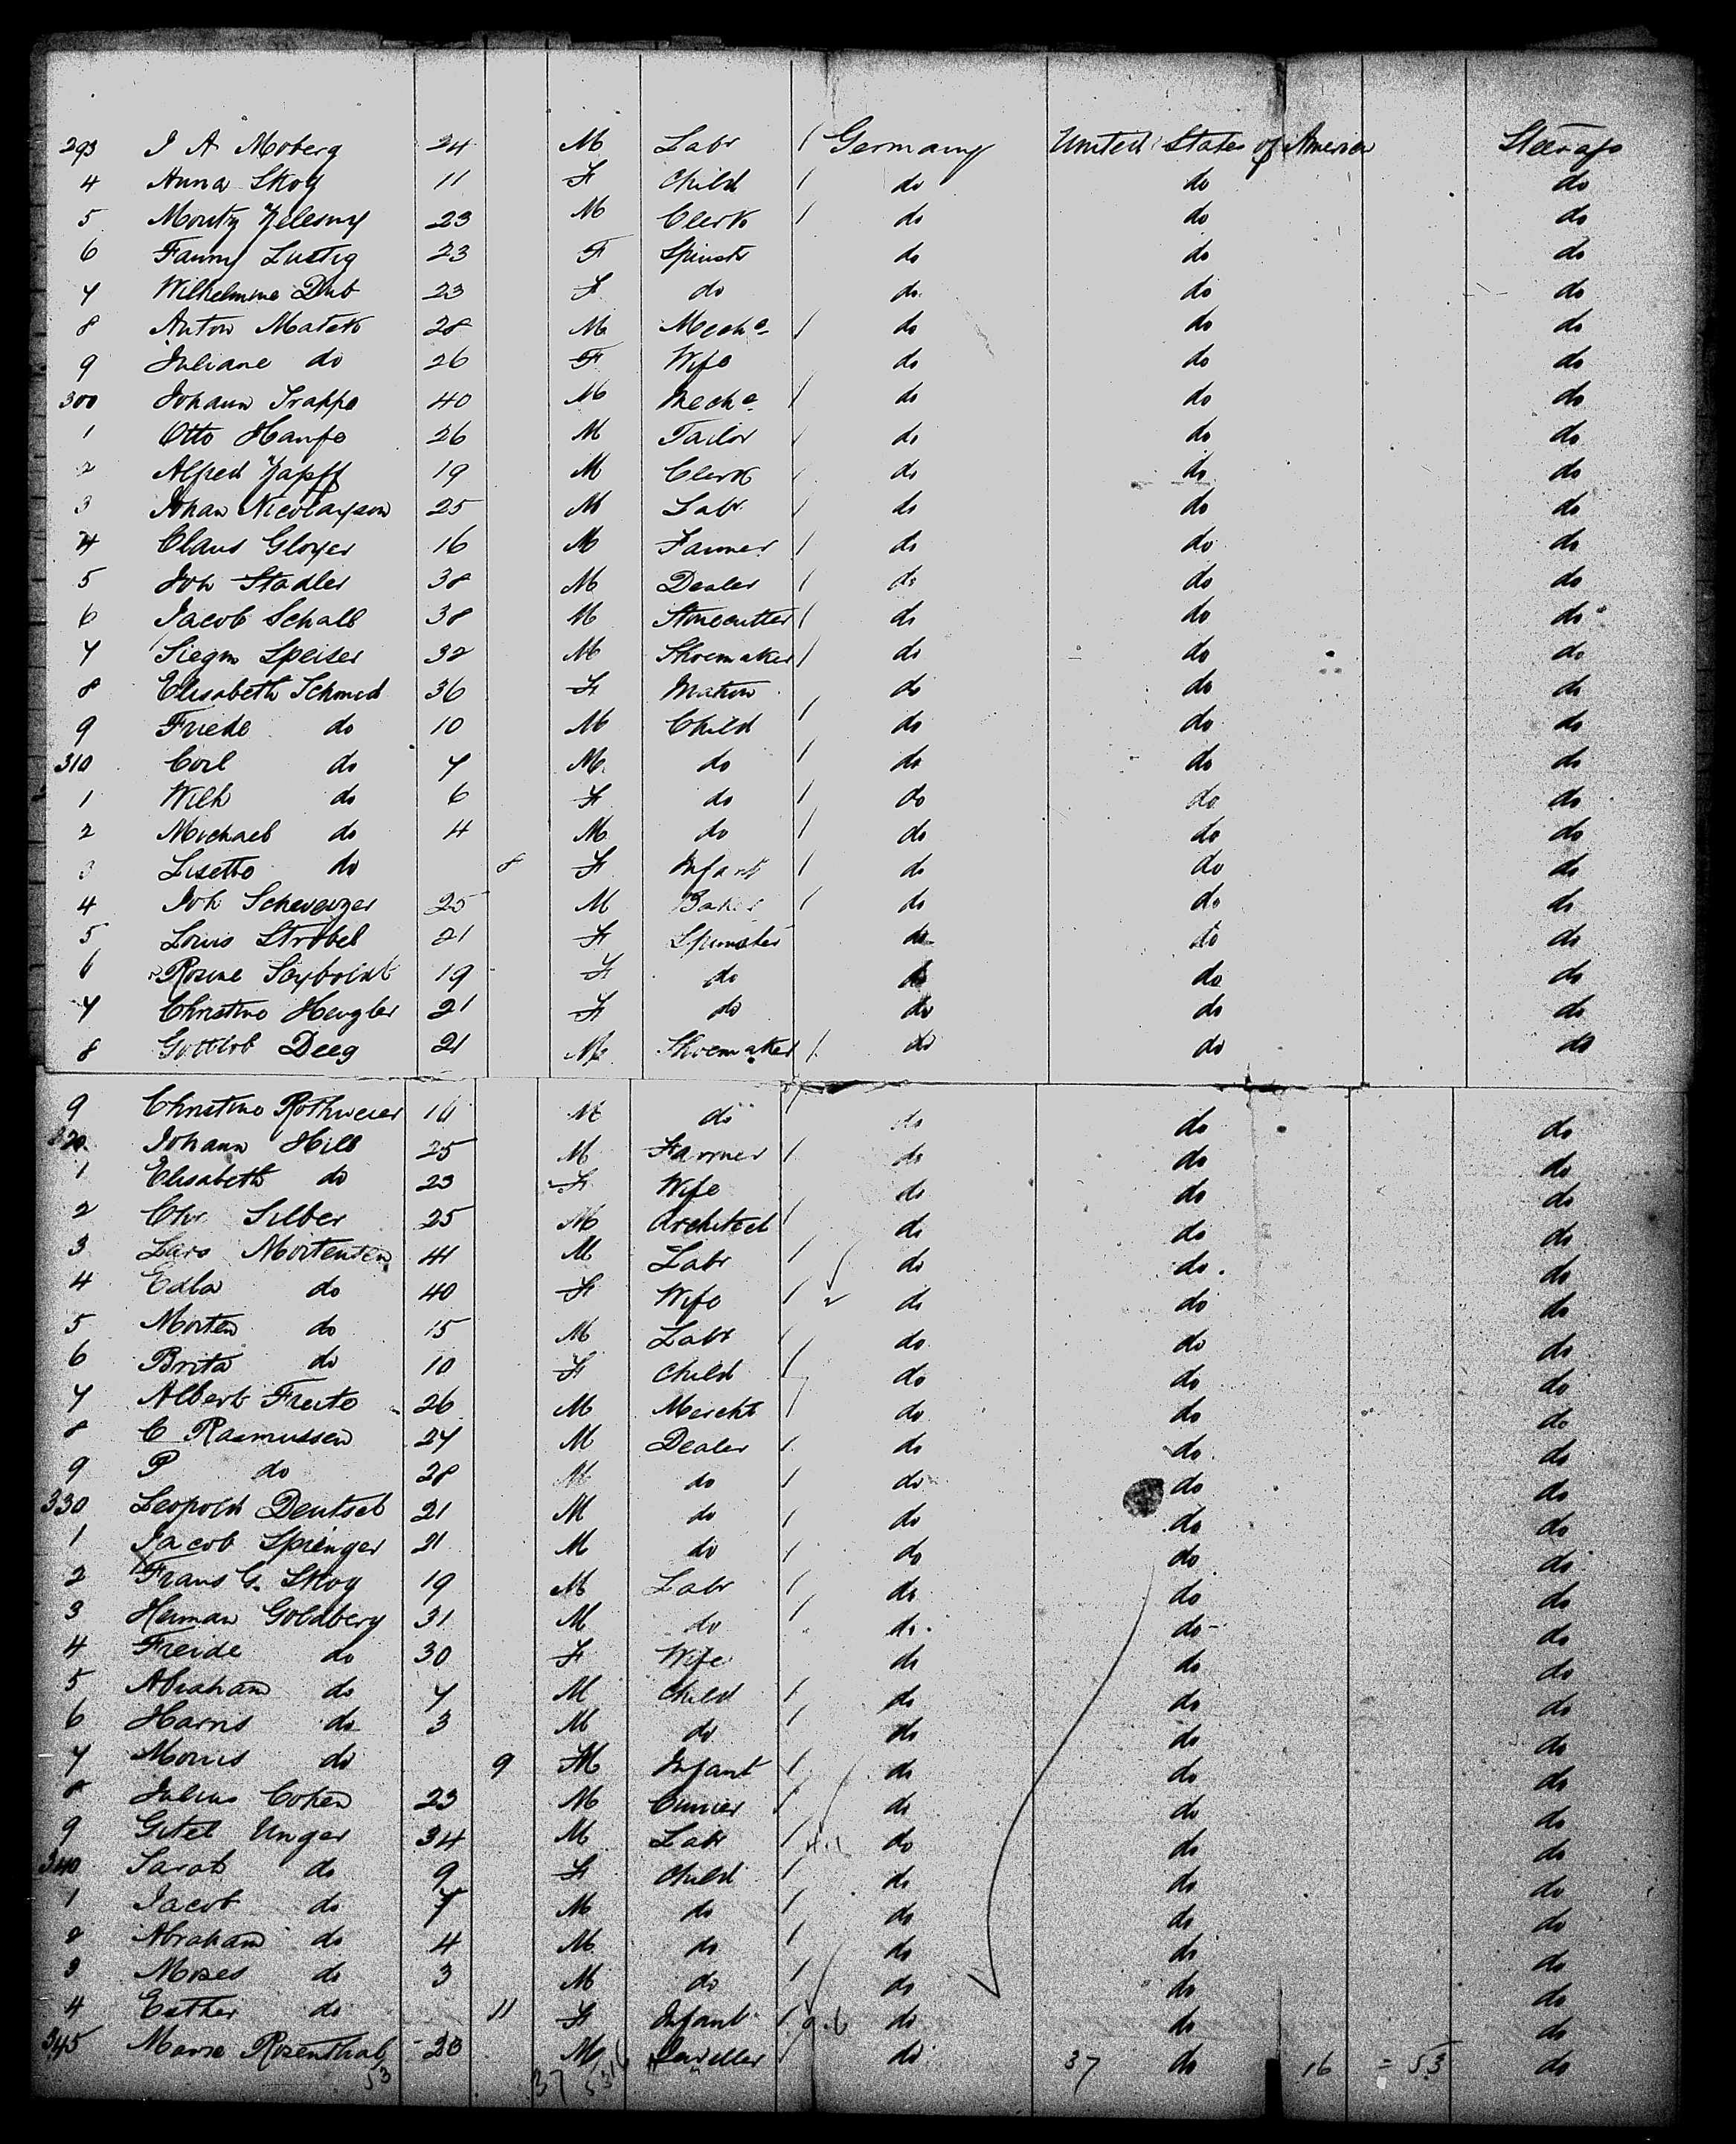 293 J A Moberg 24 M Labr Germany United States of America Steerage
4 Anna Skog 11 F Child do do do
5 Moritz Zelesny 23 M Clerk do do do
6 Fanny Lustig 23 F Spinstr do do do
7 Wilhelmine Dub 23 F do do do do
8 Anton Matek 28 M Mechc do do do
9 Juliane do 26 F Wife do do do
300 Johann Trappe 40 M Mechc do do do
1 Otto Hanfe 26 M Tailor do do do
2 Alfred Zapff 19 M Clerk do do do
3 Johan Nicolayson 25 M Labr do do do
4 Claus Gloyer 16 M Farmer do do do
5 Joh Stadler 38 M Dealer do do do
6 Jacob Schall 38 M Stonecutter do do do
7 Siegm Speiser 32 M Shoemaker do do do
8 Elisabeth Schmid 36 F Matron do do do
9 Friede do 10 M Child do do do
310 Carl do 7 M do do do do
1 Wilh do 6 F do do do do
2 Michael do 4 M do do do do
3 Lisette do 8 F Infant do do do
4 Joh Schweizer 25 M Baker do do do
5 Louis Strobel 21 F Spinster do do do
6 Rosine 19 F do do do do
7 Christine Hengler 21 F do do do do
8 Gottlob Deeg 21 M Shoemaker do do do
9 Christine Rothweier 16 M do do do do
320 Johann Hill 25 M Farmer do do do
1 Elisabeth do 23 F Wife do do do
2 Chr Silber 25 M Architect do do do
3 Lars Mortensen 41 M Labr do do do
4 Edla do 40 F Wife do do do
5 Morten do 15 M Labr do do do
6 Brita do 10 F Child do do do
7 Albert Freite 26 M Mercht do do do
8 C Rasmussen 24 M Dealer do do do
9 P do 28 M do do do do
330 Leopold Deutsch 21 M do do do do
1 Jacob Springer 21 M do do do do
2 Frans G. Skog 19 M Labr do do do
3 Herman Goldberg 31 M do do do do
4 Freide do 30 F Wife do do do
5 Abraham do 7 M Child do do do
6 Harris do 3 M do do do do
7 Morris do 9 M Infant do do do
8 Julius Cohen 23 M Currier do do do
9 Gitel Unger 34 M Labr do do do
340 Sarah do 9 F Child do do do
1 Jacob do 7 M do do do do
2 Abraham do 4 M do do do do
3 Moses do 3 M do do do do
4 Esther do 11 F Infant 9.6 do do do
345 Rosenthal 20 M Jeweller do 37 do 16 = 53 do
53 37 53 16